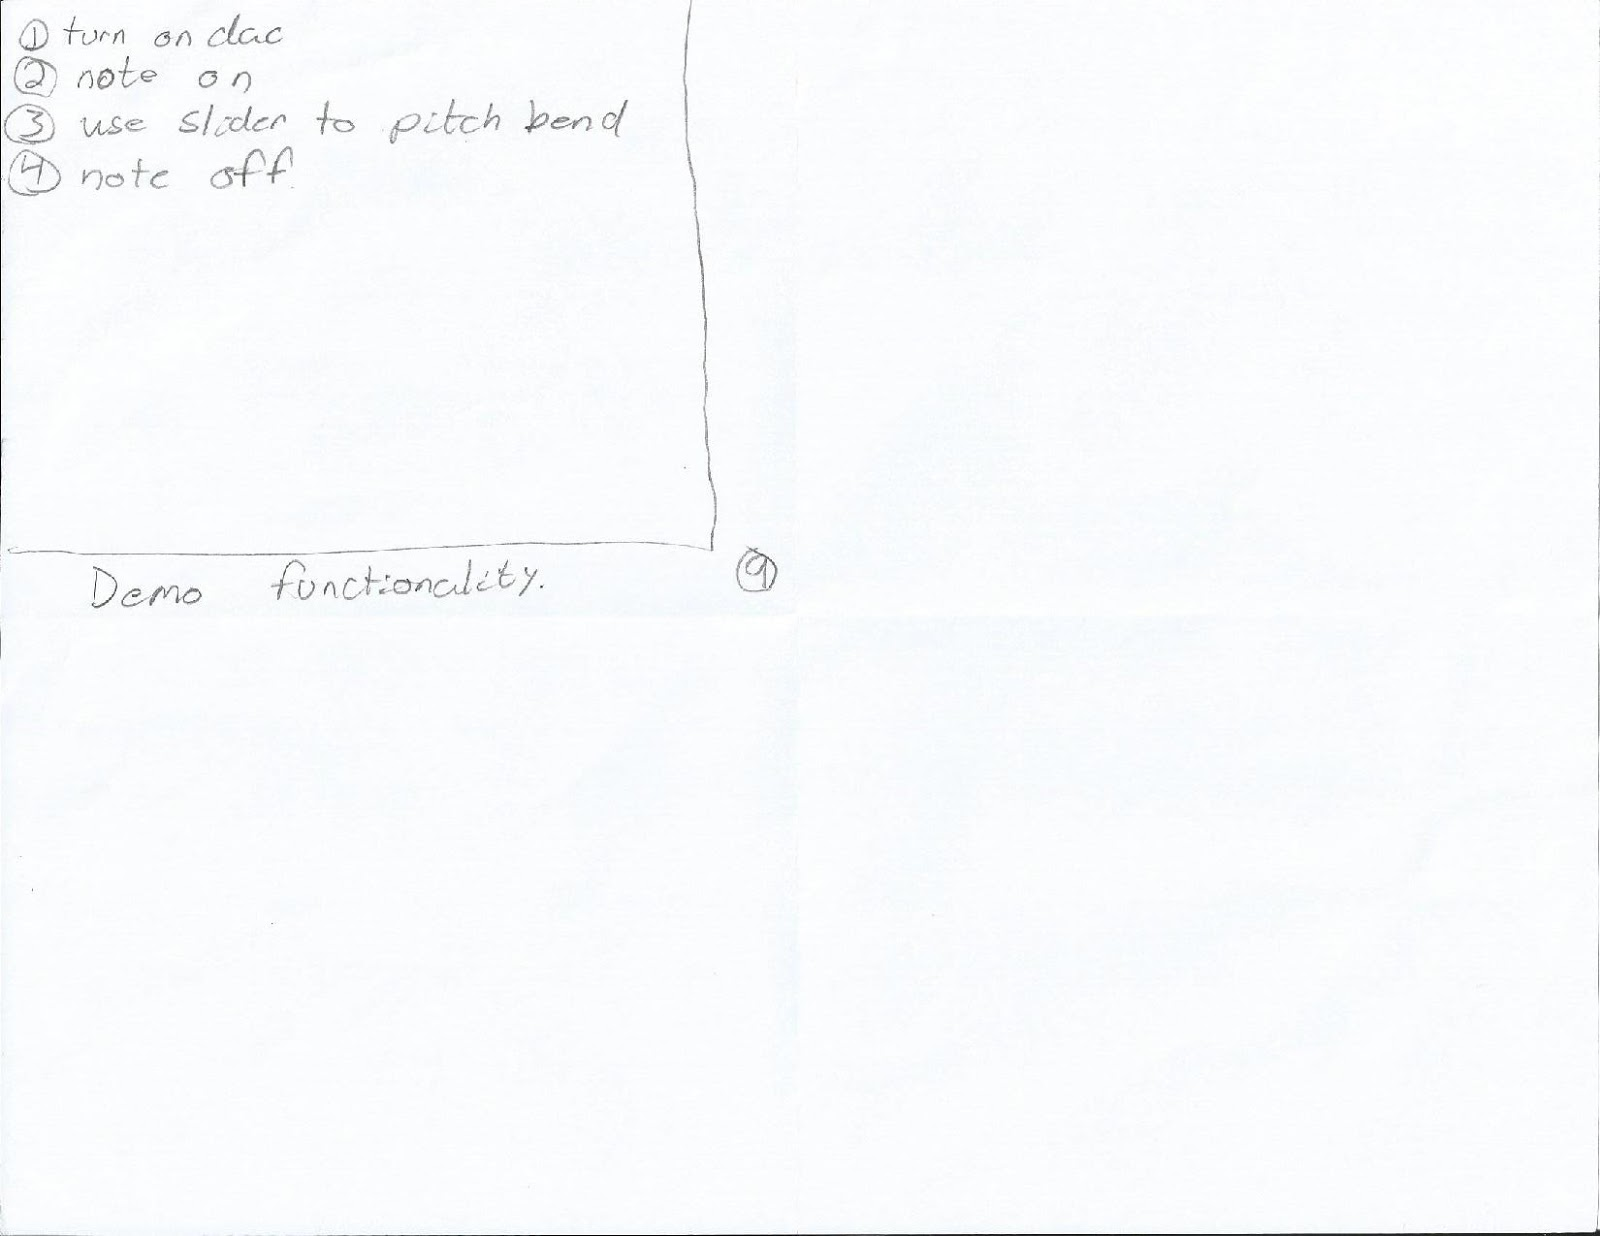 ① turn on dac
② note on
③ use slider to pitch bend
④ note off
Demo functionality.
⑨